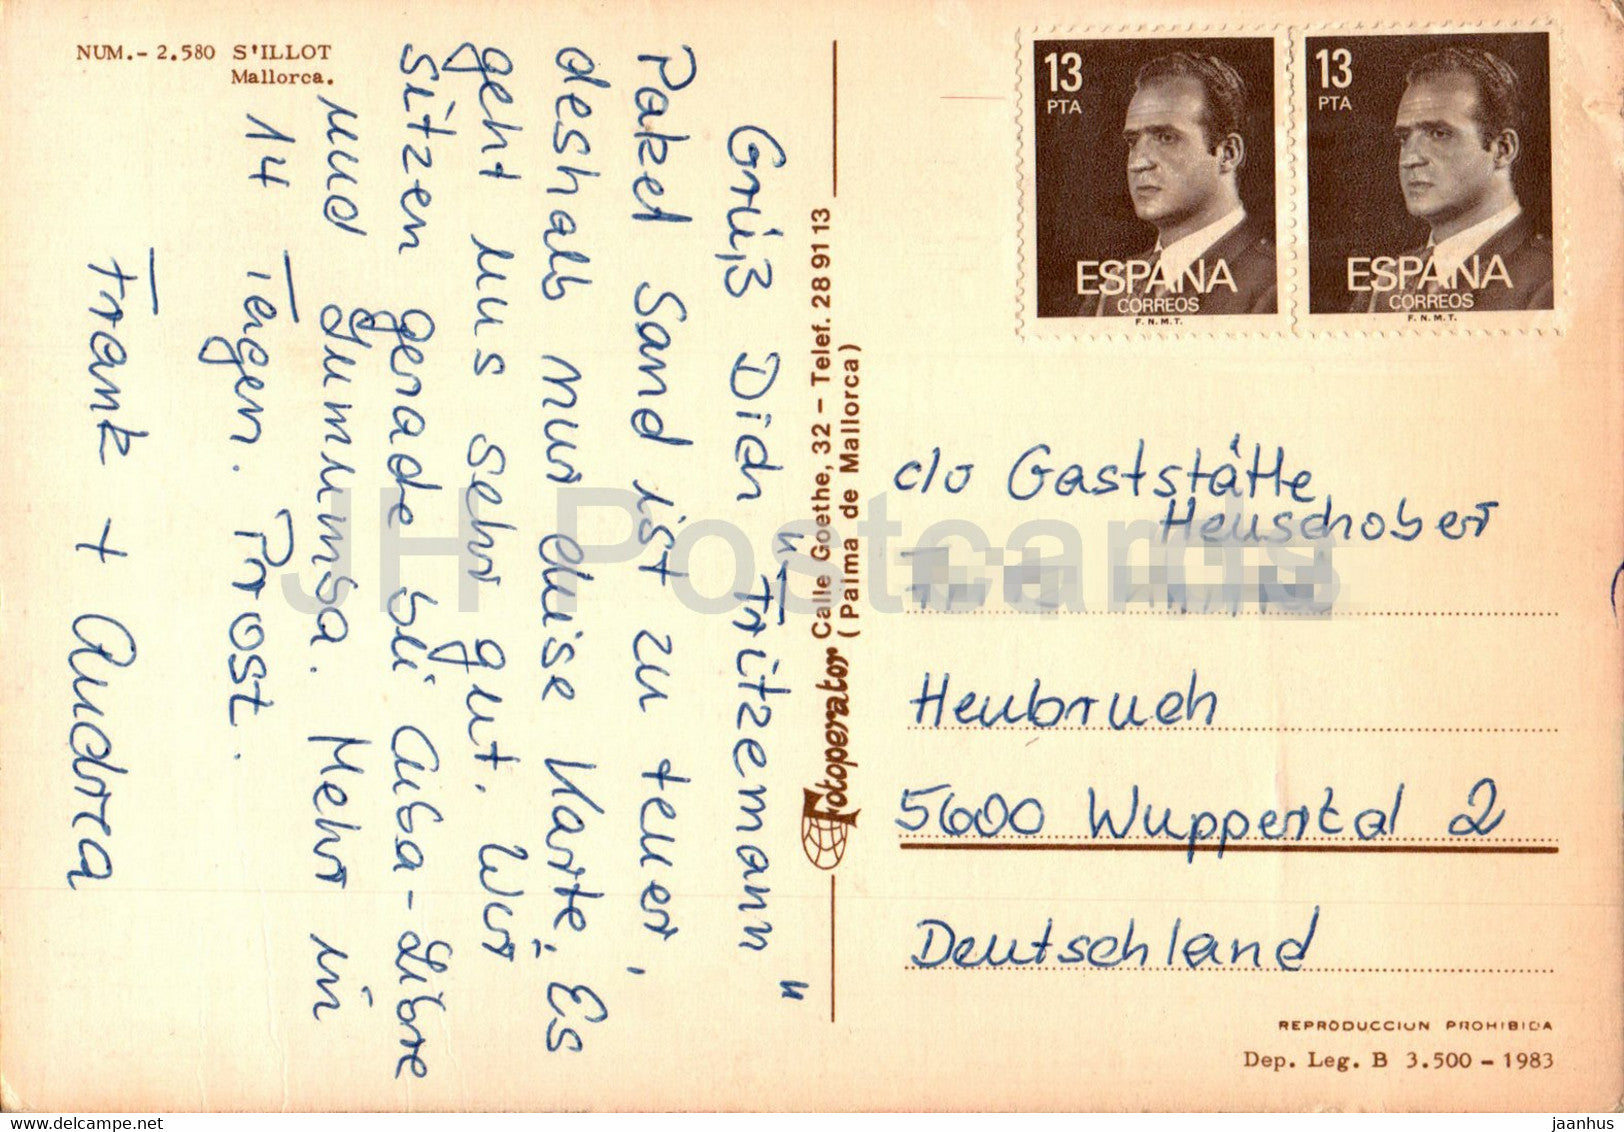 NUM.- 2.580 S'ILLOT
Mallorca.
Grüß Dich "Fritzemann"
Paket Sand ist zu teuer,
deshalb nur diese Karte. Es
geht uns sehr gut. Wir
sitzen gerade bei Cuba-Libre
und Yumumba. Mehr in
14 Tagen. Prost.
Frank + Andrea
Fotoperator Calle Goethe, 32 - Telef. 28 91 13
(Palma de Mallorca)
13
PTA
ESPAÑA
CORREOS
F.N.M.T.
13
PTA
ESPAÑA
CORREOS
F.N.M.T.
c/o Gaststätte
Heuschober
Heubruch
5600 Wuppertal 2
Deutschland
REPRODUCCIUN PROHIBIDA
Dep. Leg. B 3.500 - 1983
JH Postcards
www.delcampe.net
jaanhus